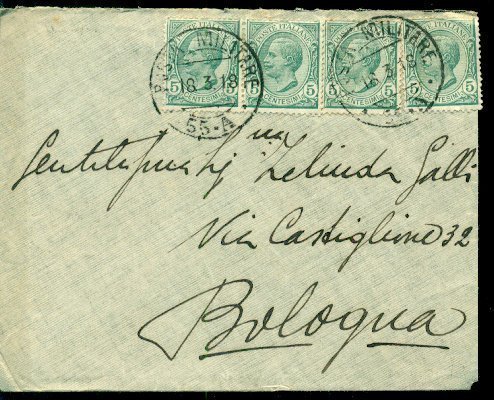 POSTE ITALIANE POSTE ITALIANE POSTE ITALIANE POSTE ITALIANE
5 CENTESIMI 5 5 CENTESIMI 5 5 CENTESIMI 5 5 CENTESIMI 5
POSTA MILITARE
18.3.18
55-A
POSTA MILITARE
18.3.18
Gentilissima Sig.na Zelinda Galli
Via Castiglione 32
Bologna